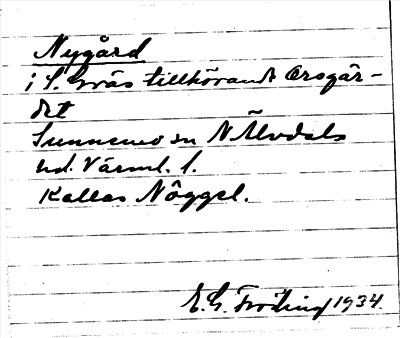 Nygård
i S. Snäs tillhörande Orsgär-
det
Sunnemo sn N Älvdals
hd. Värml. l.
Kallas Nöggel.
E. G. Fröding 1934.